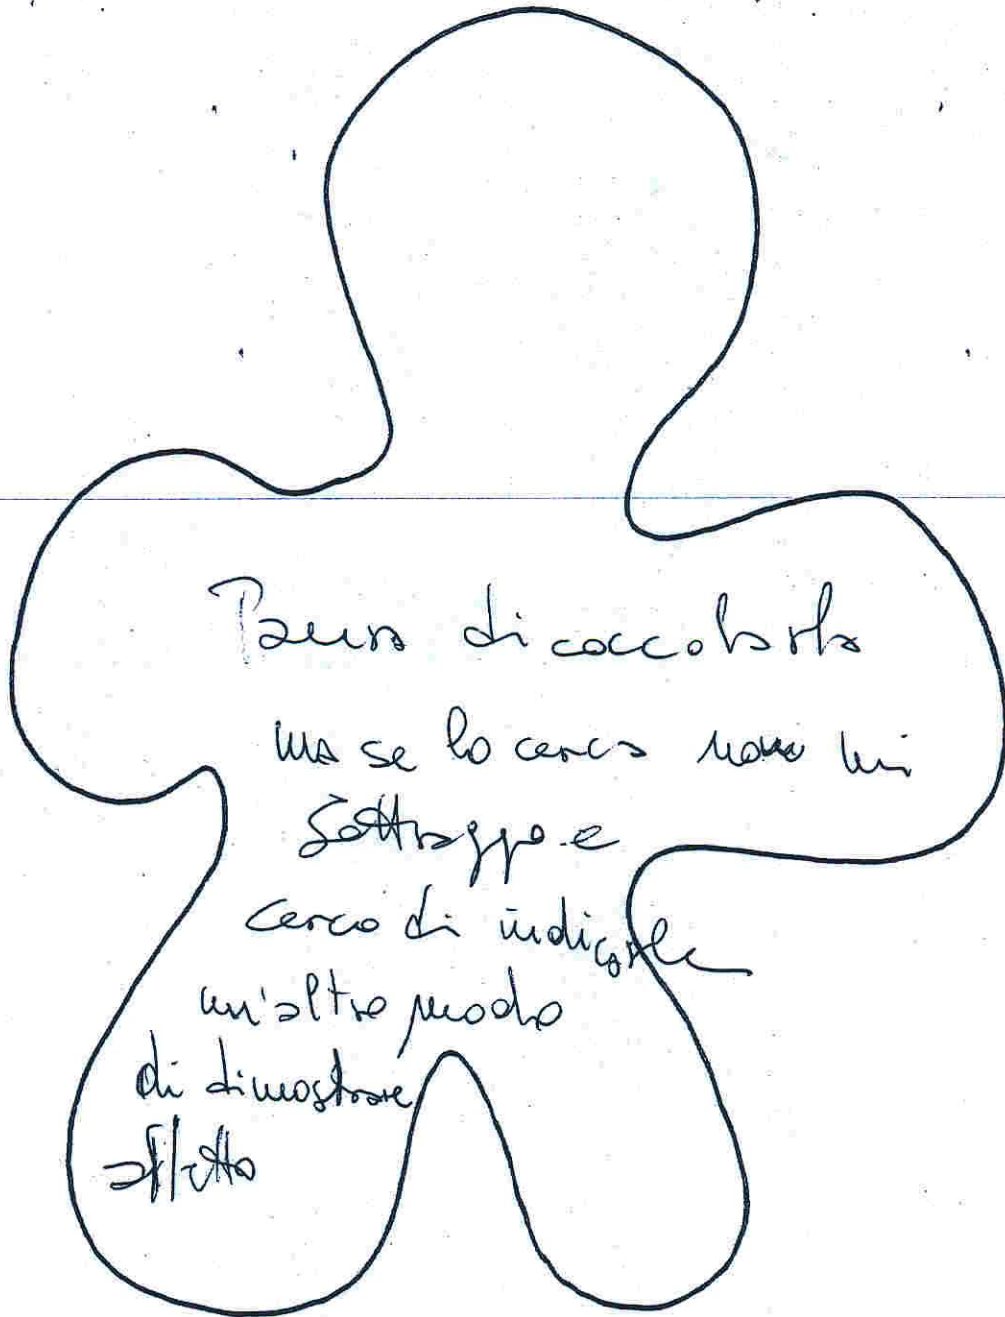 Paura di coccolarla
ma se lo cerca non mi
sottraggo e
cerco di indicarle
un'altro modo
di dimostrare
affetto